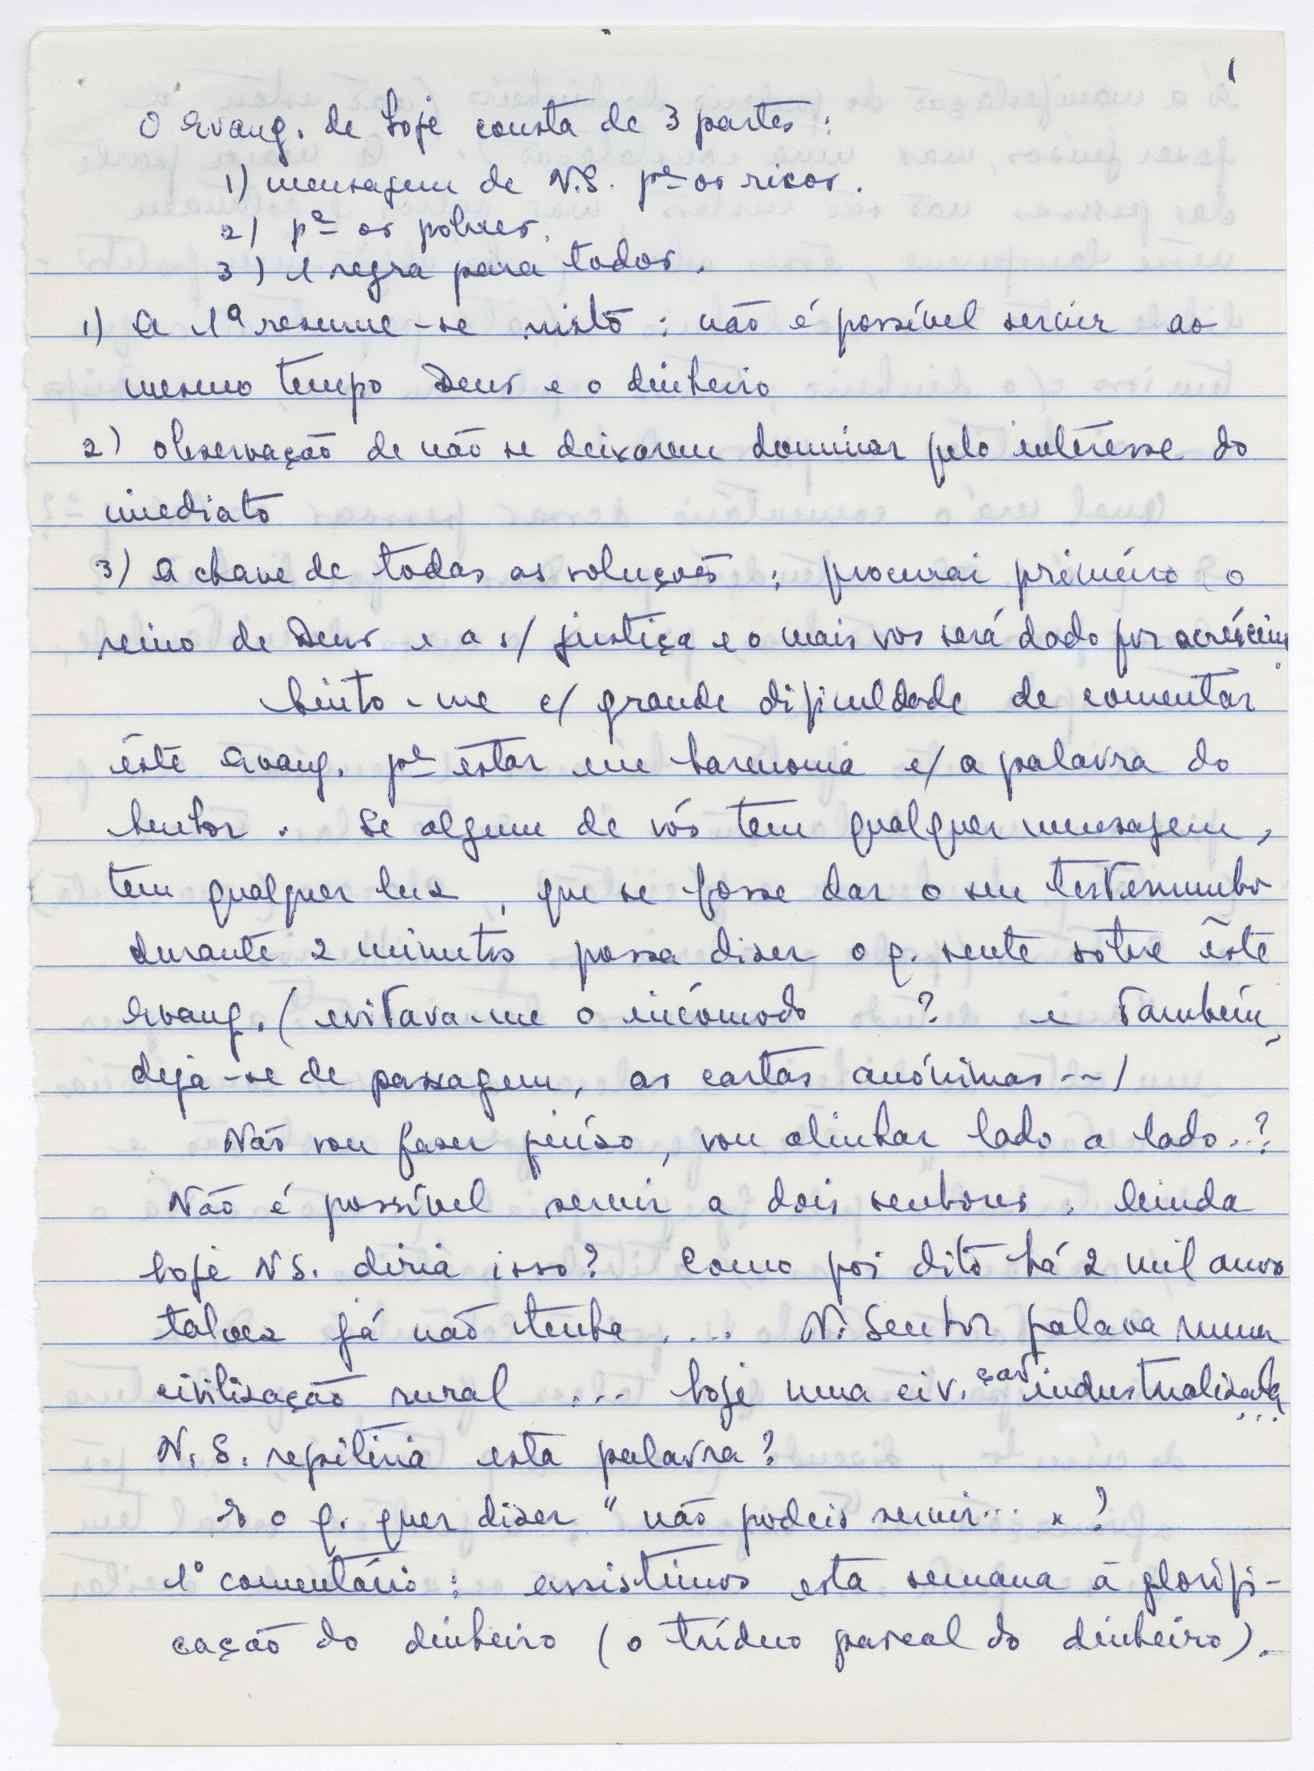 1
O Evang. de hoje consta de 3 partes:
1) mensagem de N.S. pª os ricos.
2) pª os pobres.
3) e regra para todos.
1) A 1ª resume-se nisto: não é possível servir ao
mesmo tempo Deus e o dinheiro
2) observação de não se deixarem dominar pelo interesse do
imediato
3) A chave de todas as soluções: procurai primeiro o
reino de Deus e a s/ justiça e o mais vos será dado por acréscimo
Sinto-me c/ grande dificuldade de comentar
êste Evang. pª estar em harmonia c/ a palavra do
Senhor. Se algum de vós tem qualquer mensagem,
tem qualquer luz, que se fosse dar o seu testemunho
durante 2 minutos possa dizer o q. sente sobre êste
Evang. (evitava-me o incómodo ? e também,
diga-se de passagem, as cartas anónimas ...)
Não vou fazer juízo, vou alinhar lado a lado...?
Não é possível servir a dois senhores. Ainda
hoje N.S. diria isso? Como foi dito há 2 mil anos
talvez já não tenha .... N. Senhor falava numa
civilização rural .... hoje uma civ.ção industrializada
...
N.S. repetiria esta palavra?
E o q. quer dizer "não podeis servir... "?
1º comentário: assistimos esta semana à glorifi-
cação do dinheiro (o tríduo pascal do dinheiro).